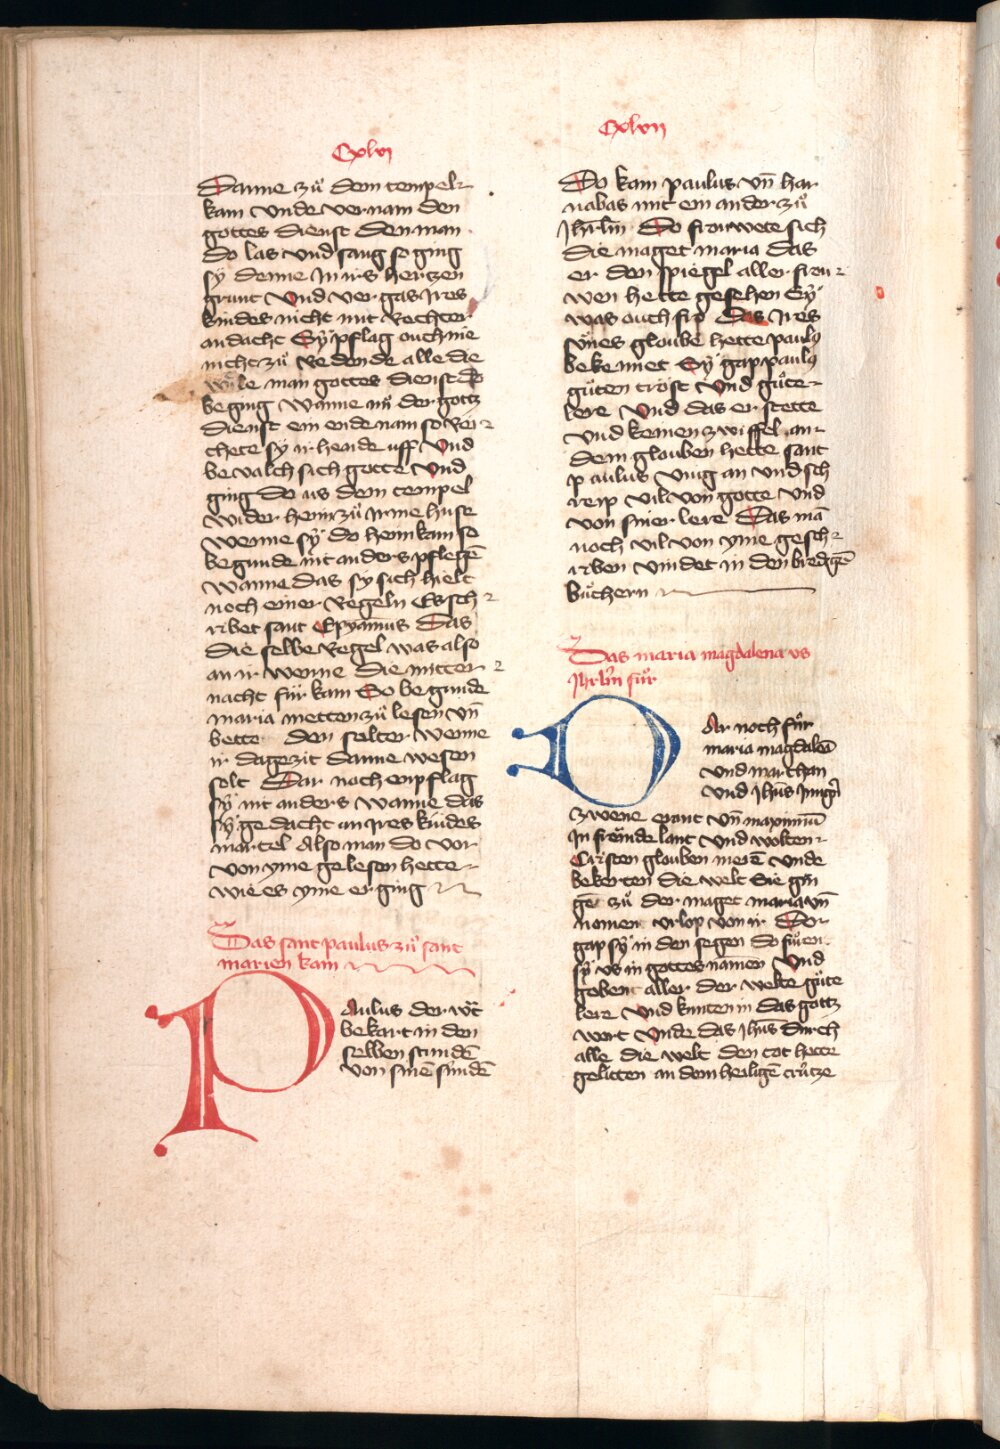 Cxlvi
Danne zů dem tempel
kam vnde vernam den
gottes dienst den man
do las vnd sang so ging
sÿ denne in irs hertzen
grunt Vnd vergas ires
kindes nicht mit rechter
andacht Sÿ pflag ouch nie
nicht zů redende alle die
wile man gottes dienst do
beging wanne nů der gottz
dienst ein ende nam so rei
chete sÿ ir hende uff Vnd
bevalch sich gotte Vnd
ging do us dem tempel
wider heim zů irme huse
wenne sÿ do heim kam so
begunde nit anders pflegē
wanne das sy sich hielt
noch einer regeln Es sch
ribet sant Epyamus Das
die selbe regel was also
an ir wenne die mitter
nacht für kam So begunde
maria metten zů lesen vn̄
bette den selter wenne
ir dagezit danne wesen
solt Dar noch enpflag
sÿ nit anders wanne das
sÿ gedacht an ires kindes
martel Also man do vor
von yme gelesen hette
wie es yme erging
Das sant paulus zů sant
marien kam
Paulus der wͦrt
bekart in den
selben stundē
von sinē sündē
Cxlvii
Do kam paulus vn̄ bar
nabas mit ein ander zů
Jhr̄lm Do froͮwete sich
die maget maria das
er den spiegel aller froͮ
wen hette gesehen Sÿ
was ouch fro Das ires
kͥnes gloube hette paulꝰ
bekennet Sÿ gap paulꝰ
gůten trost Vnd gůte
lere Vnd das er stette
vnd keinen zwiffel an
dem glouben hette sant
paulus ving an vnd sch
reip vil von gotte Vnd
von siner lere Das mā
noch vil von yme gesch
riben vindet in den bredgē
bůchern
Das maria magdalena us
Jhr̄lm fůr
Dar noch fůr
maria magdalē
vnd marthan
vnd jhūs jungꝰ
zwene erant vn̄ maximinū
in frömde lant vnd wolten
Cristen glouben merē vnde
bekerten die welt Sie gin
gē zů der maget maria vn̄
nomen vrlop von ir Do
gap sÿ in den segen do fůren
sÿ vs in gottes namen Vnd
gobent aller der welte gůte
lere Vnd kunten in das gottz
wort Vnde das jhūs durch
alle die welt den tot hette
gelitten an dem heiligē crůtze